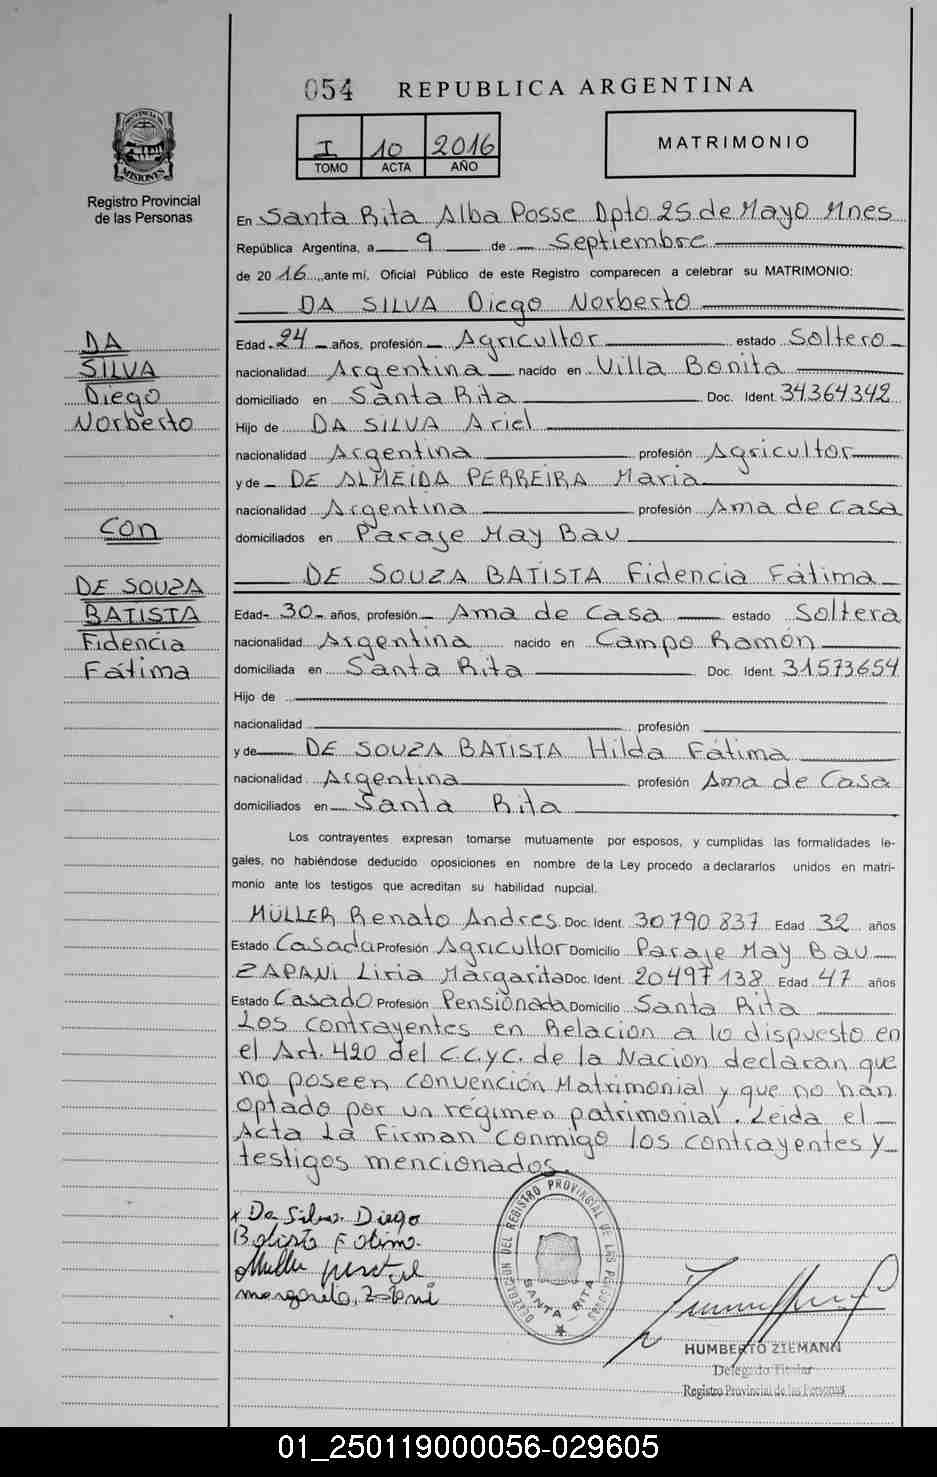 054 REPUBLICA ARGENTINA
PROVINCIA DE
MISIONES
Registro Provincial
de las Personas
I 10 2016
TOMO ACTA AÑO
MATRIMONIO
En Santa Rita Alba Posse Dpto 25 de Mayo Mnes
República Argentina, a 9 de Septiembre
de 2016, ante mí, Oficial Público de este Registro comparecen a celebrar su MATRIMONIO:
DA SILVA Diego Norberto
DA
SILVA
Diego
Norberto
Con
DE SOUZA
BATISTA
Fidencia
Fátima
Edad 24 años, profesión Agricultor estado Soltero
nacionalidad Argentina nacido en Villa Bonita
domiciliado en Santa Rita Doc. Ident. 34.364.342
Hijo de DA SILVA Ariel
nacionalidad Argentina profesión Agricultor
y de DE ALMEIDA PERREIRA Maria
nacionalidad Argentina profesión Ama de Casa
domiciliados en Paraje May Bau
DE SOUZA BATISTA Fidencia Fátima
Edad 30 años, profesión Ama de Casa estado Soltera
nacionalidad Argentina nacido en Campo Ramón
domiciliada en Santa Rita Doc. Ident. 31573654
Hijo de
nacionalidad profesión
y de DE SOUZA BATISTA Hilda Fátima
nacionalidad Argentina profesión Ama de Casa
domiciliados en Santa Rita
Los contrayentes expresan tomarse mutuamente por esposos, y cumplidas las formalidades le-
gales, no habiéndose deducido oposiciones en nombre de la Ley procedo a declararlos unidos en matri-
monio ante los testigos que acreditan su habilidad nupcial.
MÜLLER Renato Andres Doc. Ident. 30.790.837 Edad 32 años
Estado Casada Profesión Agricultor Domicilio Paraje May Bau
ZAPANI Liria Margarita Doc. Ident. 20497138 Edad 47 años
Estado Casado Profesión Pensionada Domicilio Santa Rita
Los contrayentes en Relacion a lo dispuesto en
el Art. 420 del C.C.yC. de la Nación declaran que
no poseen convención Matrimonial y que no han
optado por un régimen patrimonial. Leida el
Acta la Firman conmigo los contrayentes y
testigos mencionados.
x Da Silva Diego
Batista Fatima
Muller
margarita Zapani
DELEGACION DEL REGISTRO PROVINCIAL DE LAS PERSONAS
SANTA RITA
HUMBERTO ZIEMANN
Delegado Titular
Registro Provincial de las Personas
01_250119000056-029605